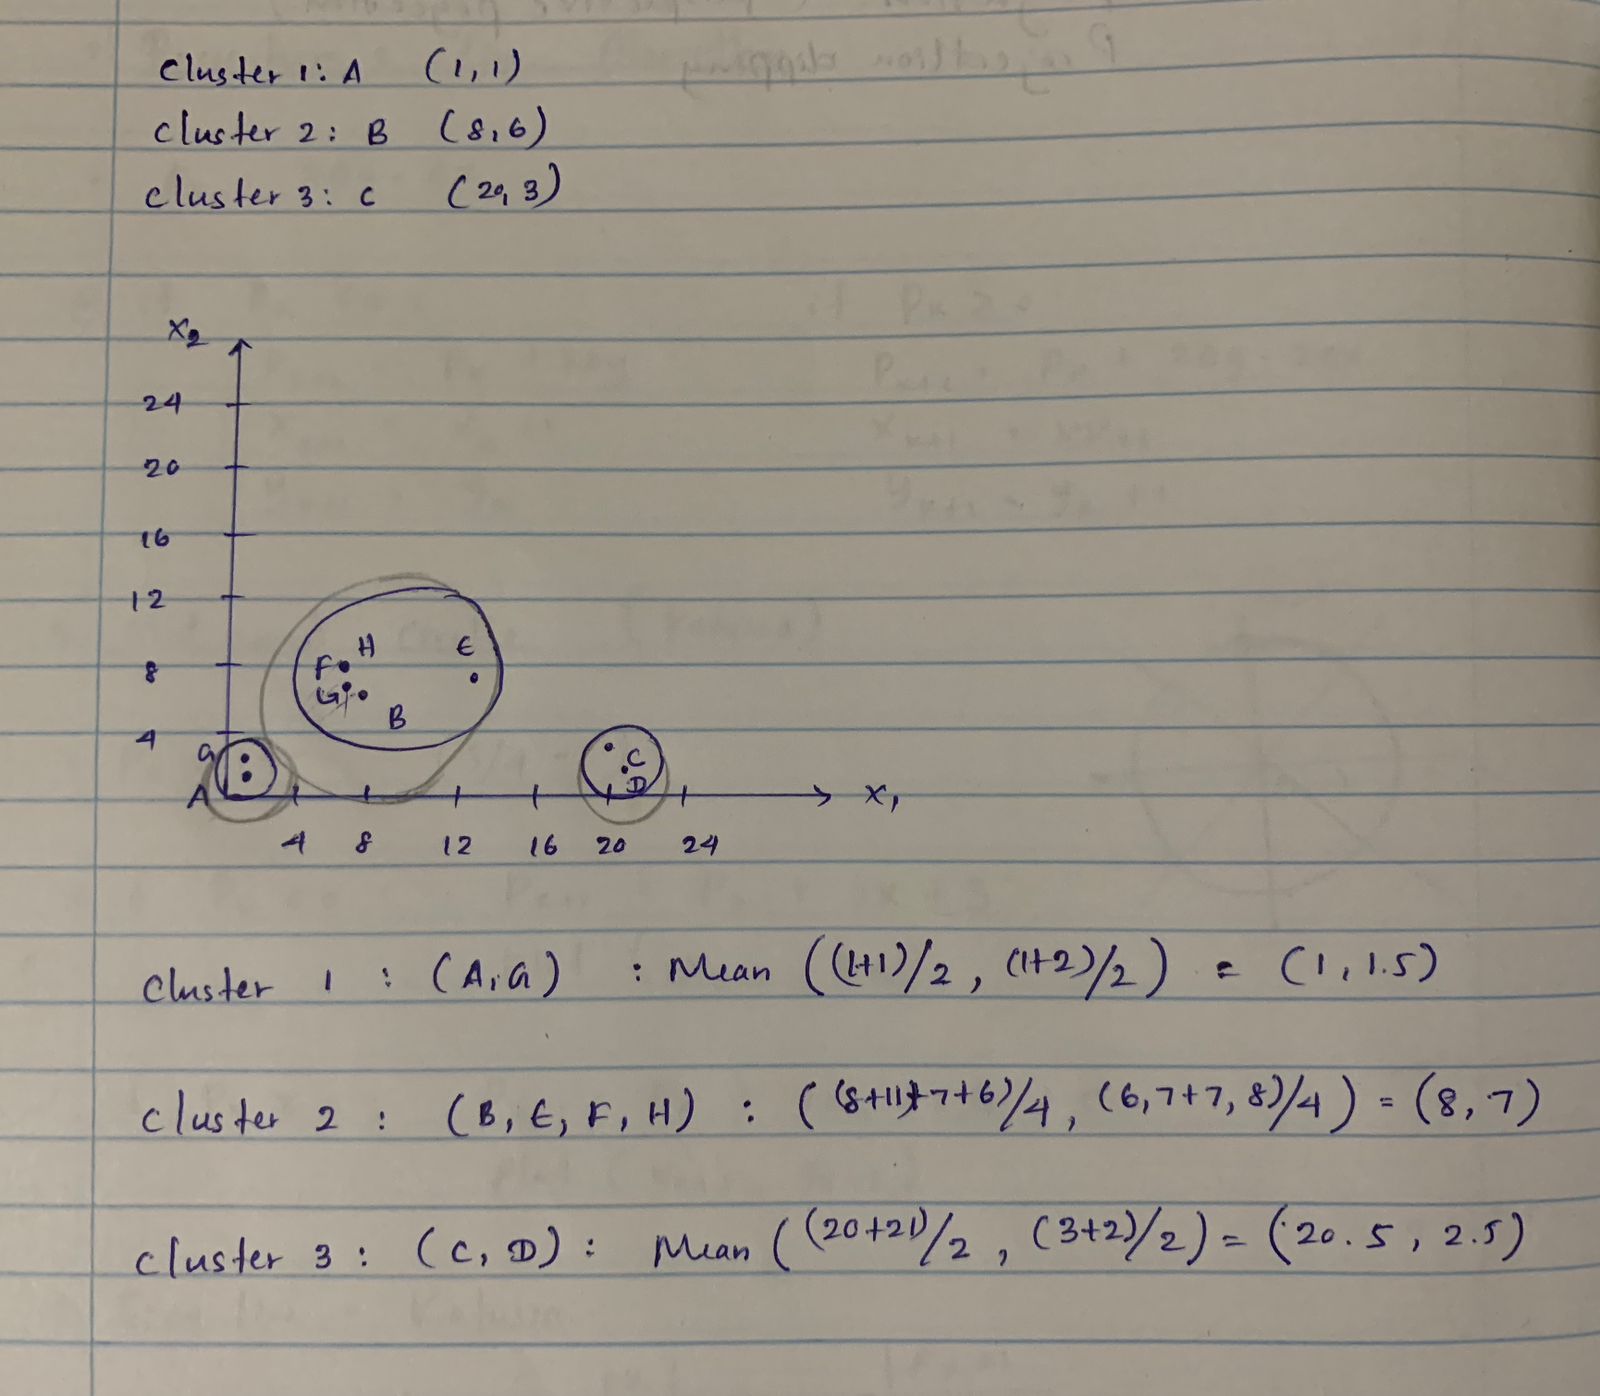 Cluster 1: A (1,1)
Cluster 2: B (8,6)
Cluster 3: C (20,3)
X2
24
20
16
12
H E
F
8
G
B
4
G
C
D
A
X1
4 8 12 16 20 24
Cluster 1 : (A,G) : Mean ((1+1)/2, (1+2)/2) = (1, 1.5)
Cluster 2 : (B, E, F, H) : ((8+11+7+6)/4, (6,7+7,8)/4) = (8,7)
Cluster 3 : (C, D) : Mean ((20+21)/2, (3+2)/2) = (20.5, 2.5)